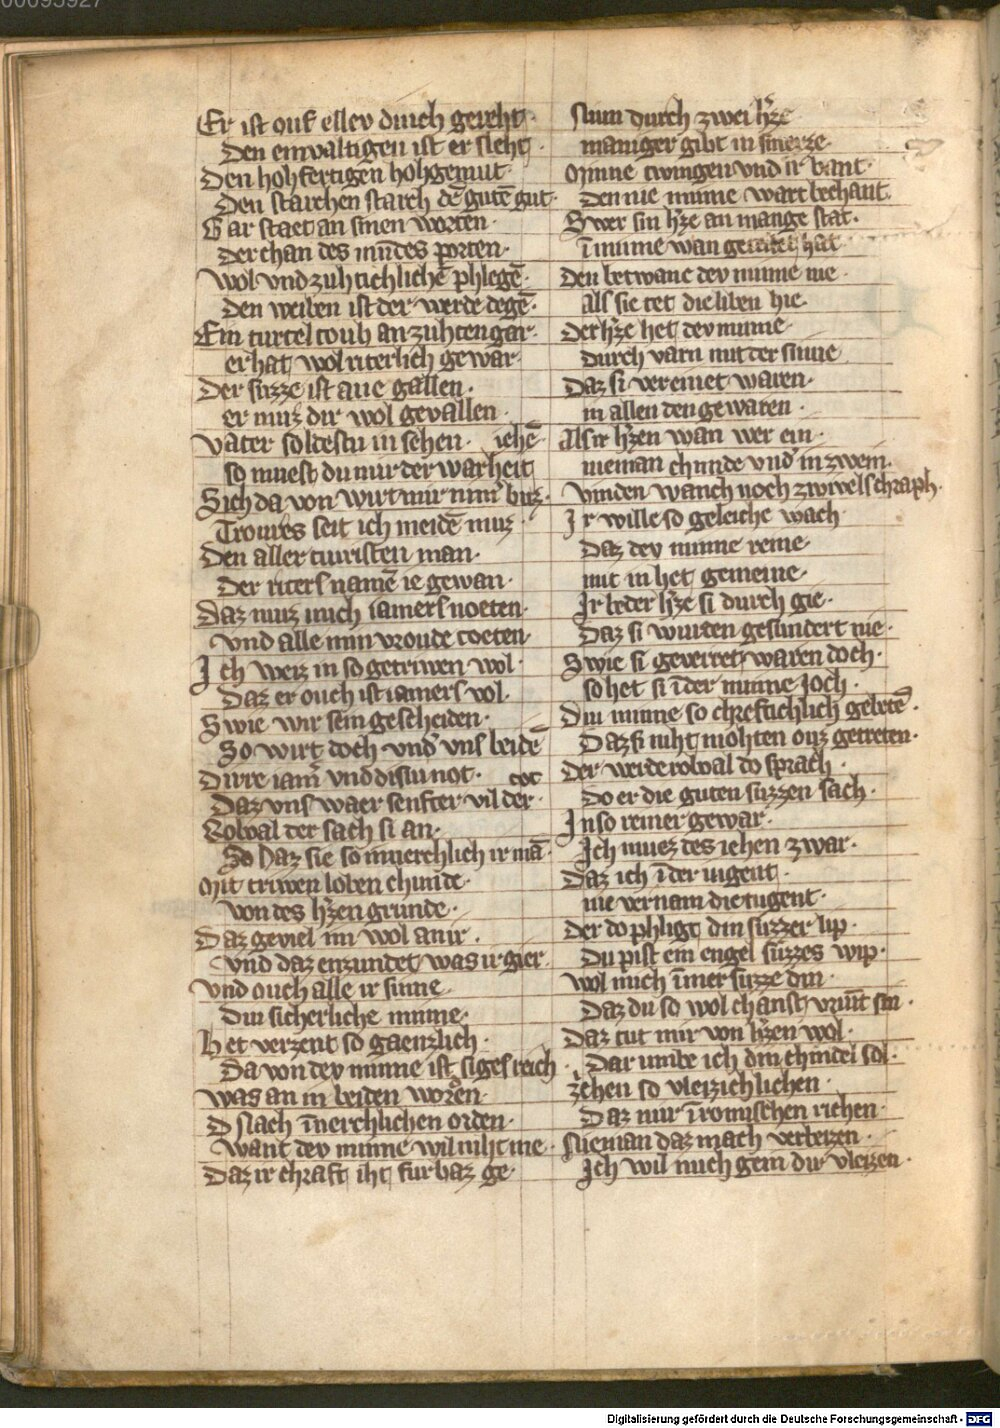 00095927
Er ist ouf ellev dinch gereht·
Den einvaltigen ist er sleht·
Den hohfertigen hohgemut·
Den starchen starch dē gutē gut·
Gar staet an sinen worten·
Der chan des mūdes porten·
Wol vnd zuhtichlichē phlegē·
Den weiben ist der werde degē·
Ein turtel toub an zuhten gar·
er hat wol riterlich gewar·
Der suzze ist ane gallen·
er muz dir wol gevallen·
Vater soldestu in sehen· iehē·
so muest du mir der warheit
Sich da von wirt mir nim̄ buz·
Troures seit ich meidē muz·
Den aller turisten man·
Der riters namē ie gewan·
Daz muz mich iamers noeten·
vnd alle min vroude toeten·
Ich weiz in so getriwen wol·
Daz er ouch ist iamers vol·
Swie wir sein gescheiden·
So wirt doch vnd' vns beidē
Dirre iam̄ vnd disiu not· tot
Daz vns waer senfter vil der·
Lowal der sach si an·
So Daz sie so innerchlich ir mā·
Mit triwen loben chunde·
Von des hzen grunde·
Daz geviel im wol an ir·
vnd daz enzundet was ir gier·
Vnd ouch alle ir sinne·
Diu sicherliche minne·
Het verzent so gaenzlich·
Da von dev minne ist siges reich
Was an in beiden worden·
D slach īnerchlichen orden·
Want dev minne wil niht me·
Daz ir chraft iht fur baz ge·
Niun durch zwei hze
maniger gibt in smerze·
Minne twingen vnd ir bant·
Den nie minne wart bechant·
Swer sin hze an mange stat·
ī minne wan geteilet hat
Den betwanc dev minne nie·
Als sie tet die liben hie·
Der hze het dev minne·
Durch varn mit der sinne
Daz si vereinet waren·
in allen den gewaren·
Als ir hzen wan wer ein·
nieman chunde vnd' in zwein·
Vinden wanch noch zwivels chraph·
Ir wille so geleiche wach·
Daz dev minne reine·
mit in het gemeine·
Ir beder hze si durch gie·
Daz si wurden gesundert nie·
Swie si geverret waren doch·
so het si ī der minne Joch·
Diu minne so chreftichlich gebetē·
Daz si niht mohten ouz getreten·
Der werde lowal do sprach·
Do er die guten suzzen sach·
In so reiner gewar·
Ich muez des iehen zwar·
Daz ich ī der iugent·
nie vernam die tugent·
Der do phligt din suzzer lip·
Du pist ein engel suzzes wip·
Wol mich īmer suzze din·
Daz du so wol chanst vriūt sin·
Daz tut mir von hzen wol·
Dar umbe ich din chindel sol·
Zehen so vleizichlichen·
Daz mir ī romischen richen·
Nieman daz mach verbeizen·
Ich wil mich gein dir vleizen·
Digitalisierung gefördert durch die Deutsche Forschungsgemeinschaft - DFG